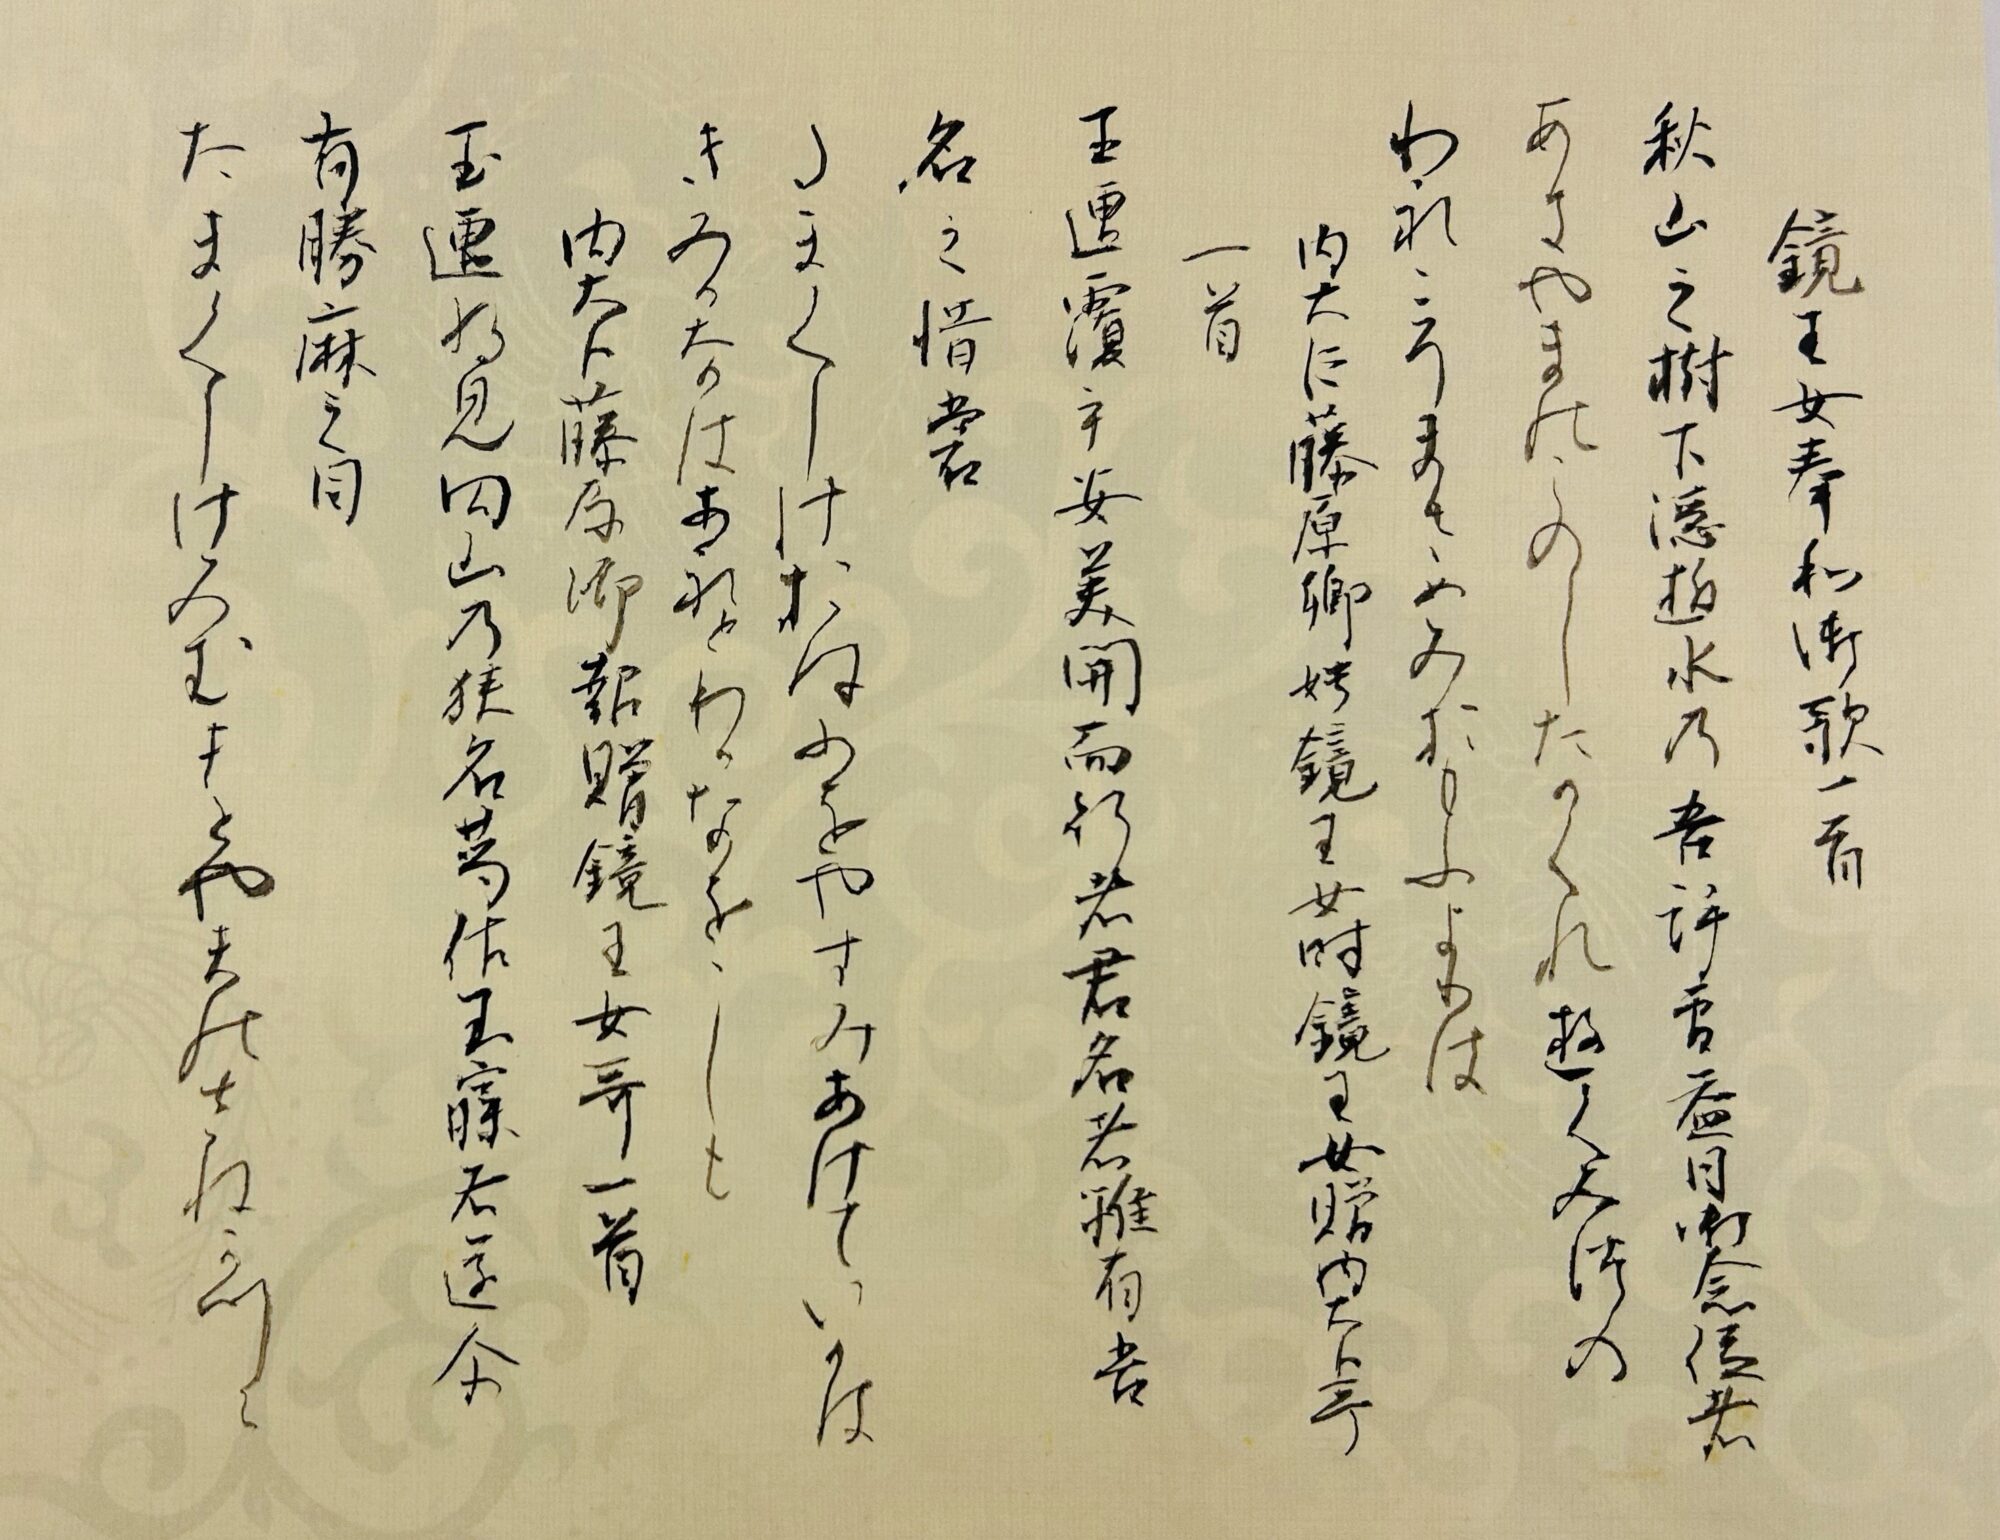 鏡王女奉和御歌一首
秋山之樹下隠逝水乃吾許曽益目御念従者
あきやまのこのしたかくれ遊くみつの
われこそまさめみおもふよりは
内大臣藤原卿娉鏡王女時鏡王女贈内大臣哥
一首
玉匣覆乎安美開而行者君名者雖有吾
名之惜裳
たまくしけおほふをやすみあけていかは
きみかなはあれとわかなをしも
内大臣藤原卿報贈鏡王女哥一首
玉匣将見円山乃狭名葛佐不寐者遂尓
有勝麻之目
たまくしけみむまとやまのさねかつら